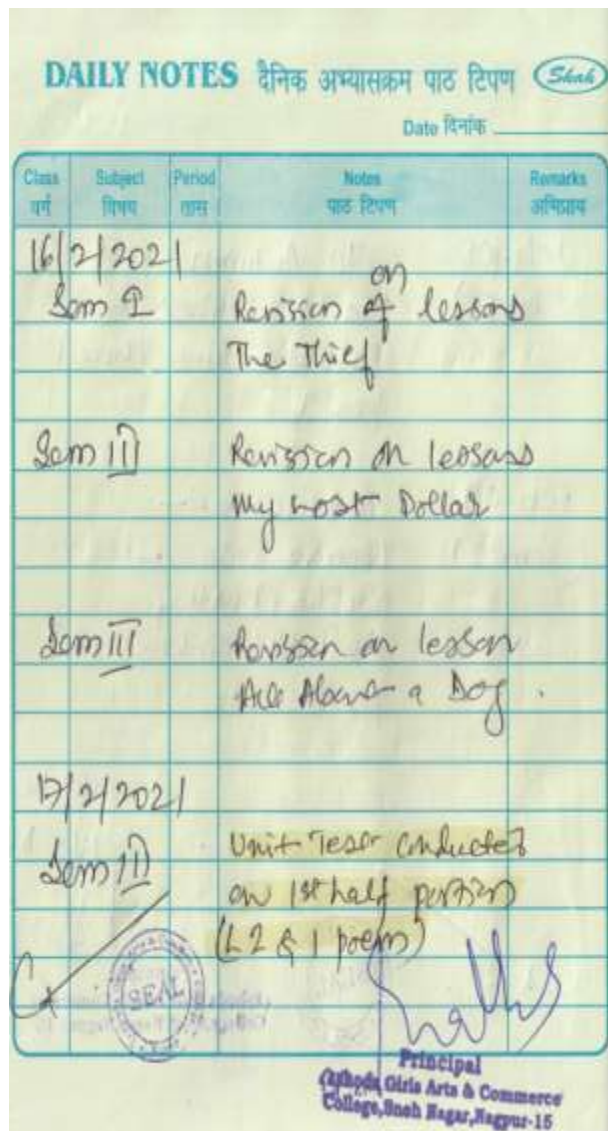 DAILY NOTES दैनिक अभ्यासक्रम पाठ टिपण Shah
Date दिनांक
Class Subject Period Notes Remarks
वर्ग विषय तास पाठ टिपण अभिप्राय
16/2/2021
on
Sem I Revision of lessons
The Thief
Sem III Revision on lessons
My Lost Dollar
Sem III Revision on lesson
All About a Dog .
17/2/2021
Sem III Unit Test conducted
on 1st half portion
(L 2 & 1 poem)
SEAL
Principal
Girls Arts & Commerce
College, Sneh Nagar, Nagpur-15